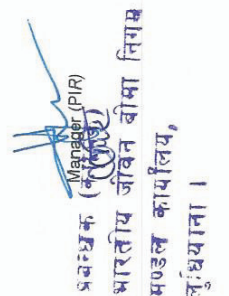 Manager (PIR)
प्रबन्धक (का
भारतीय जीवन बीमा निगम
मण्डल कार्यालय,
लुधियाना ।